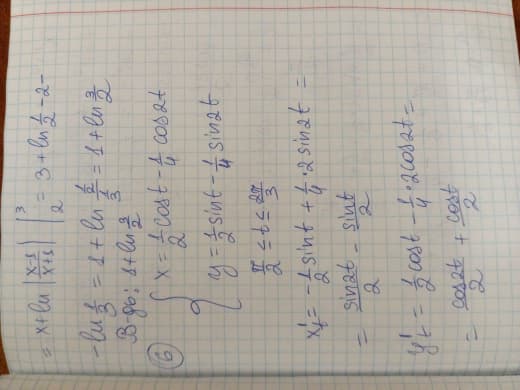 = x+ln |x-1/x+1| |³₂ = 3+ln 1/2 -2-
-ln 1/3 = 1+ln (1/2)/(1/3) = 1+ln 3/2
В-дь: 1+ln 3/2
⑥ { x = 1/2 cost - 1/4 cos2t
y = 1/2 sint - 1/4 sin2t
π/2 ≤ t ≤ 2π/3
x't = -1/2 sint + 1/4 · 2 sin2t =
= sin2t/2 - sint/2
y't = 1/2 cost - 1/4 · 2cos2t =
= cos2t/2 + cost/2